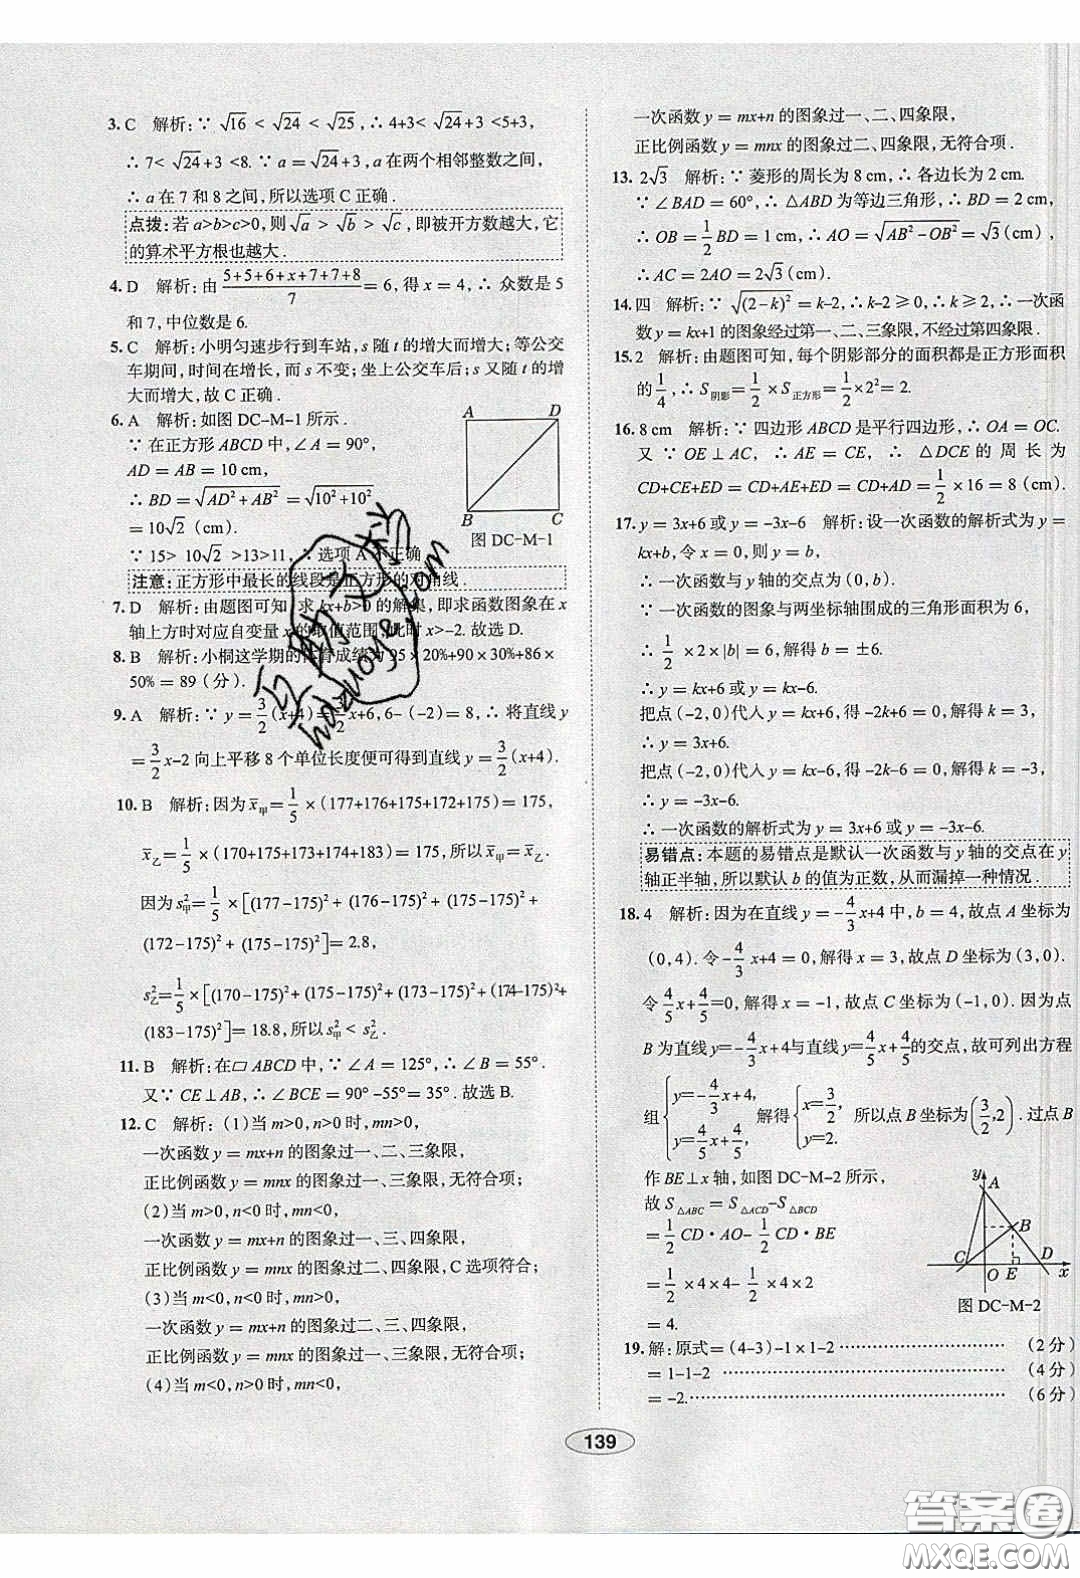 3. C 解析:∵ √16 < √24 < √25 ,∴ 4+3< √24+3 <5+3,
∴ 7< √24+3 <8. ∵ a = √24+3 ,a 在两个相邻整数之间,
∴ a 在 7 和 8 之间,所以选项 C 正确.
点拨:若 a>b>c>0,则 √a > √b > √c ,即被开方数越大,它
的算术平方根也越大.
4. D 解析:由 (5+5+6+x+7+7+8)/7 = 6,得 x = 4,∴ 众数是 5
和 7,中位数是 6.
5. C 解析:小明匀速步行到车站,s 随 t 的增大而增大;等公交
车期间,时间在增长,而 s 不变;坐上公交车后;s 又随 t 的增
大而增大,故 C 正确.
6. A 解析:如图 DC-M-1 所示.
∵ 在正方形 ABCD 中,∠A = 90°,
AD = AB = 10 cm,
∴ BD = √(AD²+AB²) = √(10²+10²)
= 10√2 (cm).
∵ 15> 10√2 >13>11,∵选项 A 不正确
A D
B C
图 DC-M-1
注意:正方形中最长的线段是正方形的对角线.
7. D 解析:由题图可知 求 kx+b>0 的解集,即求函数图象在 x
轴上方时对应自变量 x 的取值范围,此时 x>-2. 故选 D.
8. B 解析:小桐这学期的体育成绩为 95×20%+90×30%+86×
50% = 89 (分).
9. A 解析:∵ y = 3/2 (x+4) = 3/2 x+6,6-(-2) = 8,∴ 将直线 y
= 3/2 x-2 向上平移 8 个单位长度便可得到直线 y = 3/2 (x+4).
10. B 解析:因为 x̄甲= 1/5 ×(177+176+175+172+175) = 175,
x̄乙= 1/5 ×(170+175+173+174+183) = 175,所以 x̄甲= x̄乙.
因为 s²甲= 1/5 ×[(177-175)²+(176-175)²+(175-175)²+
(172-175)²+(175-175)²]= 2.8,
s²乙= 1/5 ×[(170-175)²+(175-175)²+(173-175)²+(174-175)²+
(183-175)²]= 18.8,所以 s²甲 < s²乙.
11. B 解析:在 ▱ ABCD 中,∵ ∠A = 125°,∴ ∠B = 55°.
又∵ CE⊥AB,∴ ∠BCE = 90°-55°= 35°. 故选 B.
12. C 解析:(1)当 m>0,n>0 时,mn>0,
一次函数 y = mx+n 的图象过一、二、三象限,
正比例函数 y = mnx 的图象过一、三象限,无符合项;
(2)当 m>0,n<0 时,mn<0,
一次函数 y = mx+n 的图象过一、三、四象限,
正比例函数 y = mnx 的图象过二、四象限,C 选项符合;
(3)当 m<0,n<0 时,mn>0,
一次函数 y = mx+n 的图象过二、三、四象限,
正比例函数 y = mnx 的图象过一、三象限,无符合项;
(4)当 m<0,n>0 时,mn<0,
一次函数 y = mx+n 的图象过一、二、四象限,
正比例函数 y = mnx 的图象过二、四象限,无符合项.
13. 2√3 解析:∵ 菱形的周长为 8 cm,∴ 各边长为 2 cm.
∵ ∠BAD = 60°,∴ △ABD 为等边三角形,∴ BD = 2 cm,
∴ OB = 1/2 BD = 1 cm,∴ AO = √(AB²-OB²) = √3 (cm),
∴ AC = 2AO = 2√3 (cm).
14. 四 解析:∵ √(2-k)² = k-2,∴ k-2 ≥ 0,∴ k ≥ 2,∴ 一次函
数 y = kx+1 的图象经过第一、二、三象限,不经过第四象限.
15. 2 解析:由题图可知,每个阴影部分的面积都是正方形面积
的 1/4 ,∴ S阴影= 1/2 × S正方形= 1/2 ×2²= 2.
16. 8 cm 解析:∵ 四边形 ABCD 是平行四边形,∴ OA = OC.
又 ∵ OE⊥AC, ∴ AE = CE, ∴ △DCE 的 周 长 为
CD+CE+ED = CD+AE+ED = CD+AD = 1/2 ×16 = 8 (cm).
17. y = 3x+6 或 y = -3x-6 解析:设一次函数的解析式为 y =
kx+b,令 x = 0,则 y = b,
∴ 一次函数与 y 轴的交点为(0,b).
∵ 一次函数的图象与两坐标轴围成的三角形面积为 6,
∴ 1/2 ×2×|b| = 6,∴ b = ±6.
∴ y = kx+6 或 y = kx-6.
把点(-2,0)代入 y = kx+6,得 -2k+6 = 0,解得 k = 3,
∴ y = 3x+6.
把点(-2,0)代入 y = kx-6,得 -2k-6 = 0,解得 k = -3,
∴ y = -3x-6.
∴ 一次函数的解析式为 y = 3x+6 或 y = -3x-6.
易错点:本题的易错点是默认一次函数与 y 轴的交点在 y
轴正半轴,所以默认 b 的值为正数,从而漏掉一种情况.
18. 4 解析:因为在直线 y = -4/3 x+4 中,b = 4,故点 A 坐标为
(0,4). 令 -4/3 x+4 = 0,解得 x = 3,故点 D 坐标为(3,0).
令 4/5 x+4/5 =0,解得 x = -1,故点 C 坐标为(-1,0). 因为点
B 为直线 y=-4/3 x+4与直线 y= 4/5 x+4/5 的交点,故可列出方程
组 { y=-4/3 x+4, y= 4/5 x+4/5, 解得 { x= 3/2, y=2. 所以点 B 坐标为 (3/2 ,2) . 过点 B
作 BE⊥x 轴,如图 DC-M-2 所示,
故 S△ABC = S△ACD-S△BCD
= 1/2 CD·AO- 1/2 CD·BE
= 1/2 ×4×4- 1/2 ×4×2
= 4.
y A
B
C D
O E x
图 DC-M-2
19. 解:原式= (4-3)-1×1-2 ………………… (2 分)
= 1-1-2 ………………… (4 分)
= -2. ………………… (6 分)
139
hazuoye.com
答案圈
MXQE.COM